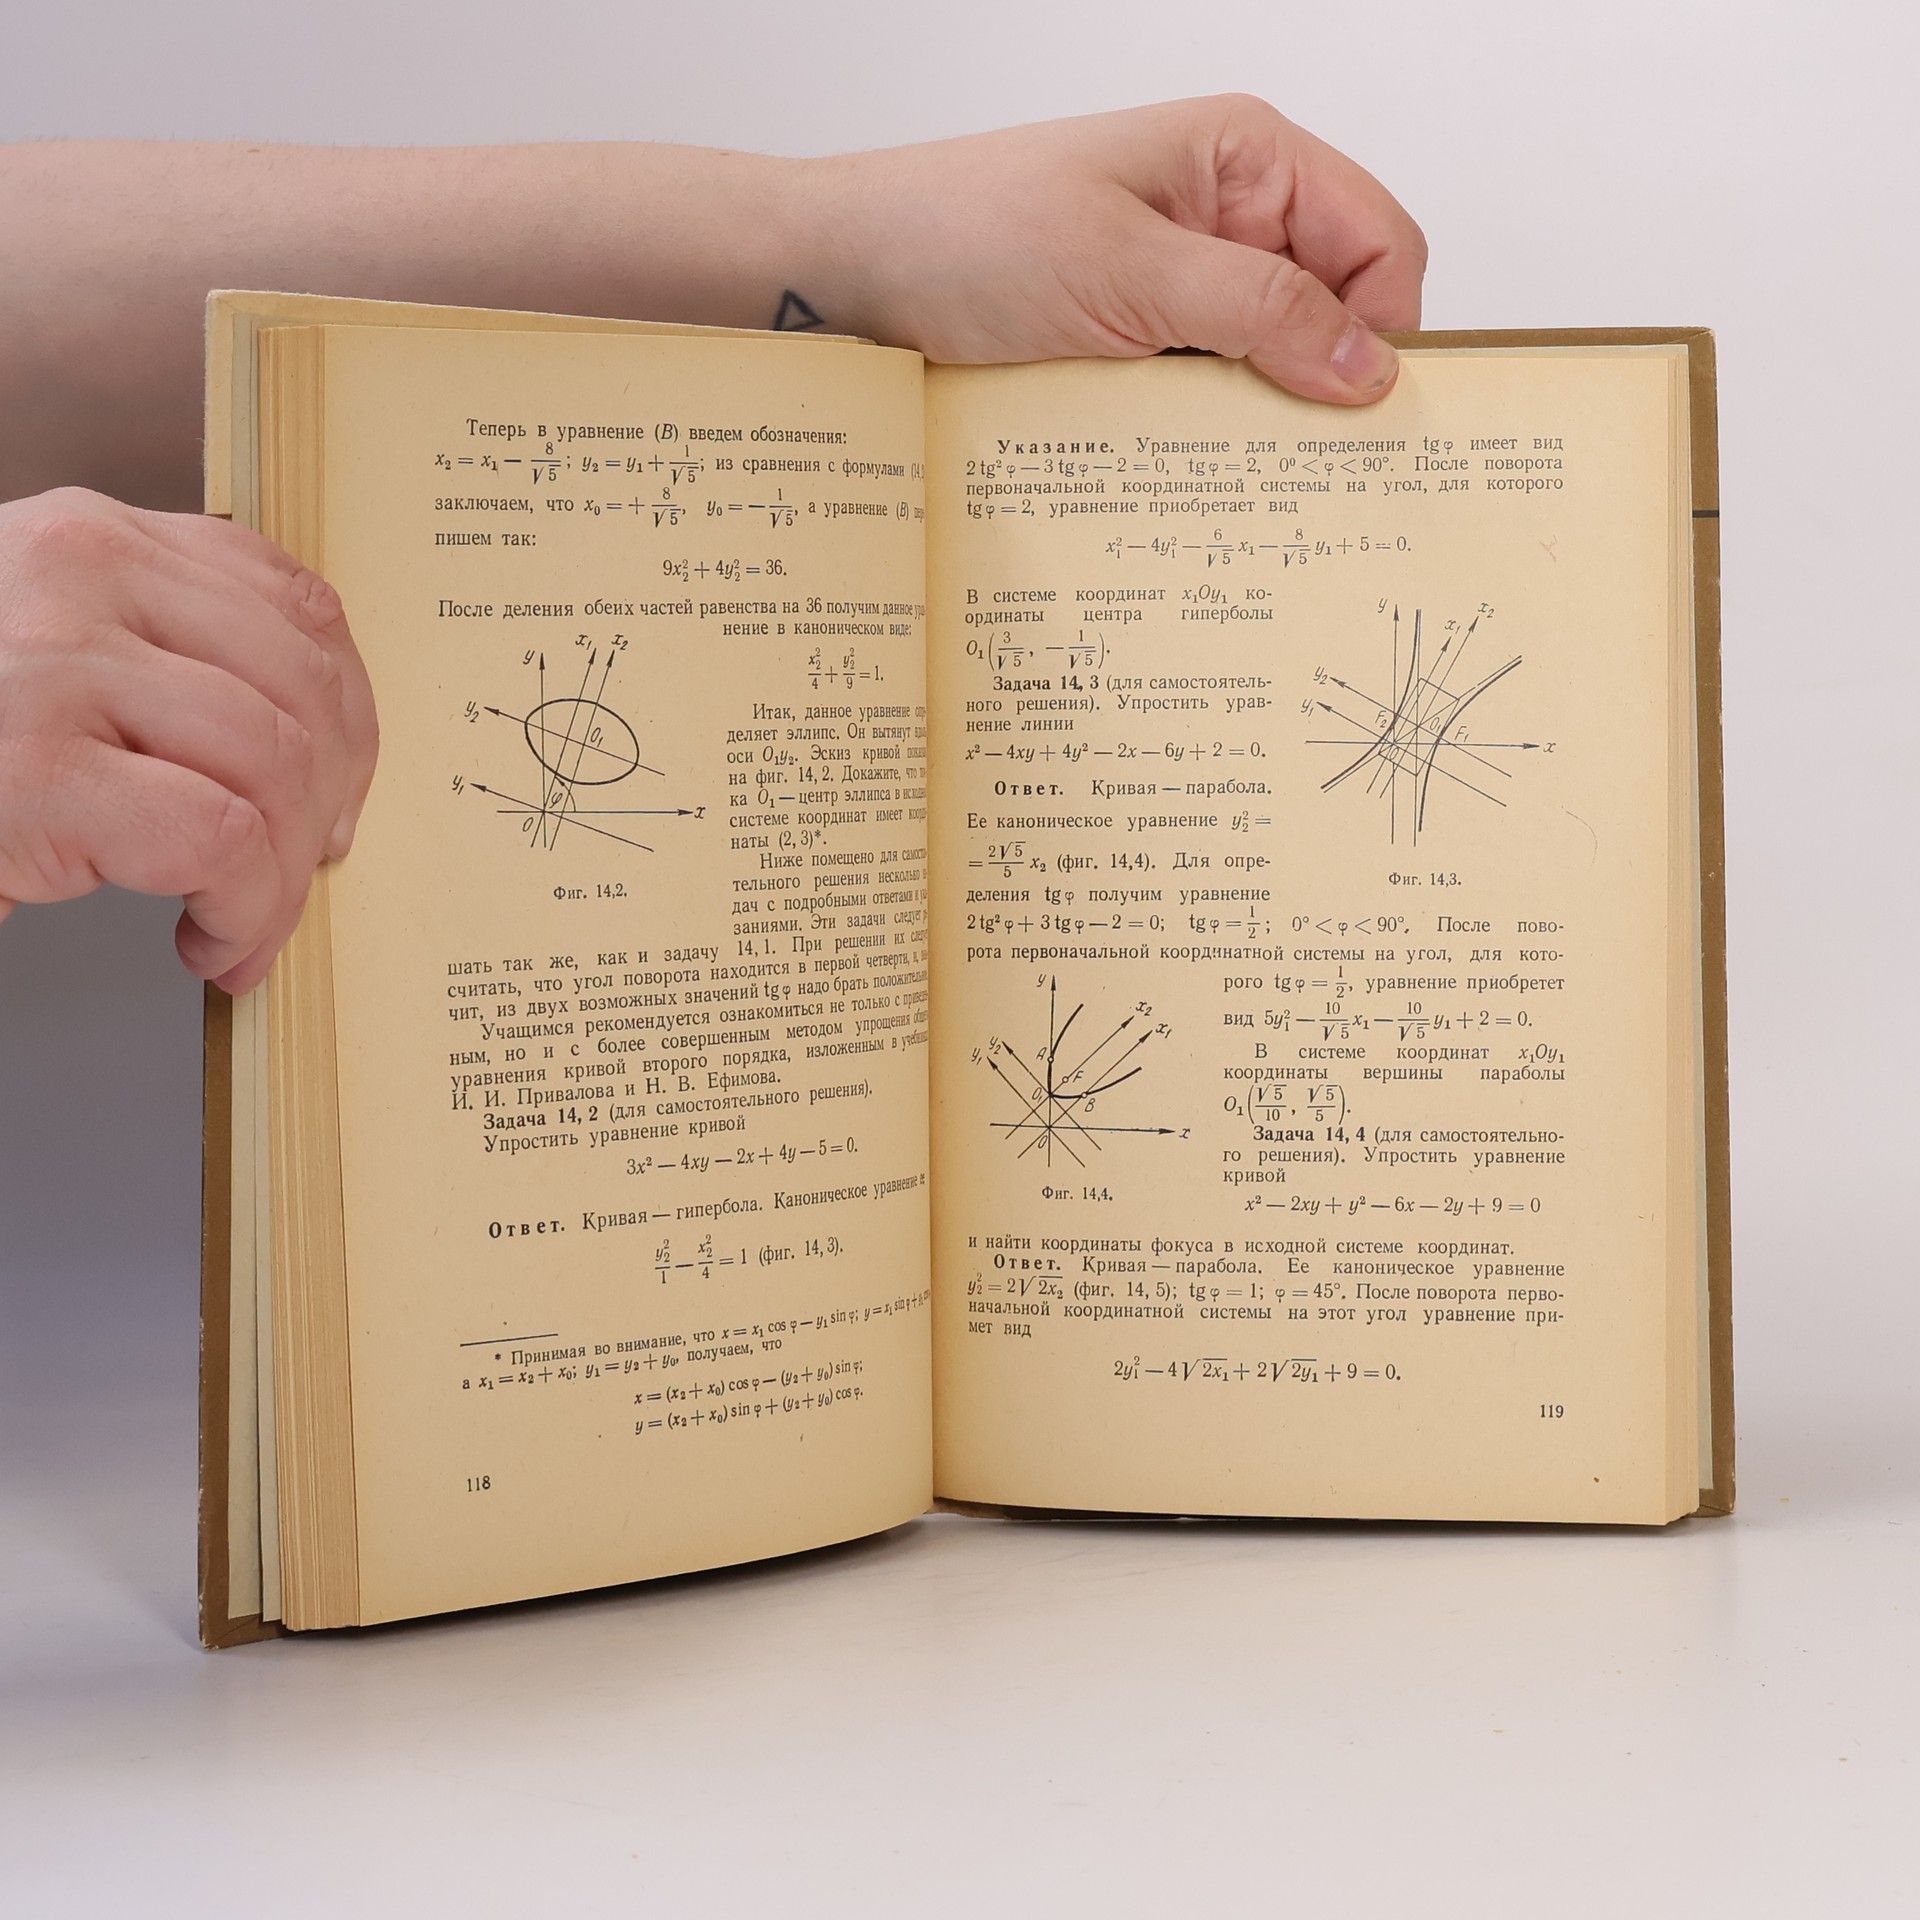 Теперь в уравнение (B) введем обозначения:
x₂ = x₁ − 8/√5; y₂ = y₁ + 1/√5; из сравнения с формулами
заключаем, что x₀ = + 8/√5, y₀ = − 1/√5, а уравнение (B)
пишем так:
9x₂² + 4y₂² = 36.
После деления обеих частей равенства на 36 получим данное
нение в каноническом виде:
x₂²/4 + y₂²/9 = 1.
Итак, данное уравнение
деляет эллипс. Он вытянут
оси O₁y₂. Эскиз кривой
на фиг. 14, 2. Докажите, что
ка O₁ — центр эллипса в
системе координат имеет
наты (2, 3)*.
Ниже помещено для
тельного решения несколько
дач с подробными ответами и
заниями. Эти задачи следует
y x₁ x₂
y₂ O₁
y₁ φ
O x
Фиг. 14,2.
шать так же, как и задачу 14, 1. При решении их
считать, что угол поворота находится в первой четверти,
чит, из двух возможных значений tg φ надо брать
Учащимся рекомендуется ознакомиться не только с
ным, но и с более совершенным методом упрощения
уравнения кривой второго порядка, изложенным в
И. И. Привалова и Н. В. Ефимова.
Задача 14, 2 (для самостоятельного решения).
Упростить уравнение кривой
3x² — 4xy — 2x + 4y — 5 = 0.
Ответ. Кривая — гипербола. Каноническое уравнение
y₂²/1 — x₂²/4 = 1 (фиг. 14, 3).
* Принимая во внимание, что x = x₁ cos φ — y₁ sin φ; y = x₁ sin φ +
а x₁ = x₂ + x₀; y₁ = y₂ + y₀, получаем, что
x = (x₂ + x₀) cos φ — (y₂ + y₀) sin φ;
y = (x₂ + x₀) sin φ + (y₂ + y₀) cos φ.
118
Указание. Уравнение для определения tg φ имеет вид
2 tg² φ — 3 tg φ — 2 = 0, tg φ = 2, 0° < φ < 90°. После поворота
первоначальной координатной системы на угол, для которого
tg φ = 2, уравнение приобретает вид
x₁² — 4y₁² — 6/√5 x₁ — 8/√5 y₁ + 5 = 0.
В системе координат x₁Oy₁ ко-
ординаты центра гиперболы
O₁(3/√5, — 1/√5).
Задача 14, 3 (для самостоятель-
ного решения). Упростить урав-
нение линии
x² — 4xy + 4y² — 2x — 6y + 2 = 0.
Ответ. Кривая — парабола.
Ее каноническое уравнение y₂² =
= 2√5/5 x₂ (фиг. 14,4). Для опре-
деления tg φ получим уравнение
y x₁ x₂
y₂
y₁ F₂ O₁ F₁
O x
Фиг. 14,3.
2 tg² φ + 3 tg φ — 2 = 0; tg φ = 1/2; 0° < φ < 90°. После пово-
рота первоначальной координатной системы на угол, для кото-
рого tg φ = 1/2, уравнение приобретет
вид 5y₁² — 10/√5 x₁ — 10/√5 y₁ + 2 = 0.
В системе координат x₁Oy₁
координаты вершины параболы
O₁(√5/10, √5/5).
Задача 14, 4 (для самостоятельно-
го решения). Упростить уравнение
кривой
x² — 2xy + y² — 6x — 2y + 9 = 0
y x₂
x₁
y₁ y₂ A
F
O₁ B
O x
Фиг. 14,4.
и найти координаты фокуса в исходной системе координат.
Ответ. Кривая — парабола. Ее каноническое уравнение
y₂² = 2√2x₂ (фиг. 14, 5); tg φ = 1; φ = 45°. После поворота перво-
начальной координатной системы на этот угол уравнение при-
мет вид
2y₁² — 4√2x₁ + 2√2y₁ + 9 = 0.
119